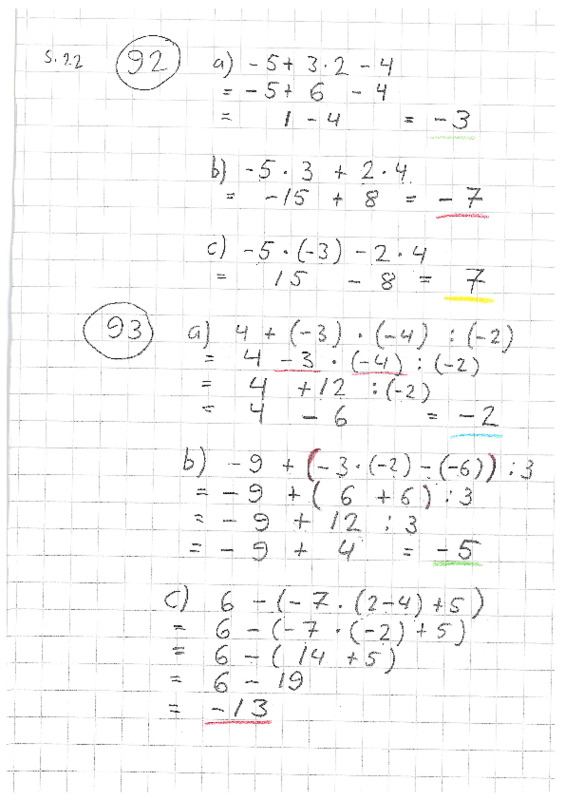 S. 22 92 a) -5 + 3 · 2 - 4
= -5 + 6 - 4
= 1 - 4 = -3
b) -5 · 3 + 2 · 4
= -15 + 8 = -7
c) -5 · (-3) - 2 · 4
= 15 - 8 = 7
93 a) 4 + (-3) · (-4) : (-2)
= 4 - 3 · (-4) : (-2)
= 4 + 12 : (-2)
= 4 - 6 = -2
b) -9 + (-3 · (-2) - (-6)) : 3
= -9 + ( 6 + 6 ) : 3
= -9 + 12 : 3
= -9 + 4 = -5
c) 6 - (-7 · (2-4) + 5)
= 6 - (-7 · (-2) + 5)
= 6 - ( 14 + 5)
= 6 - 19
= -13